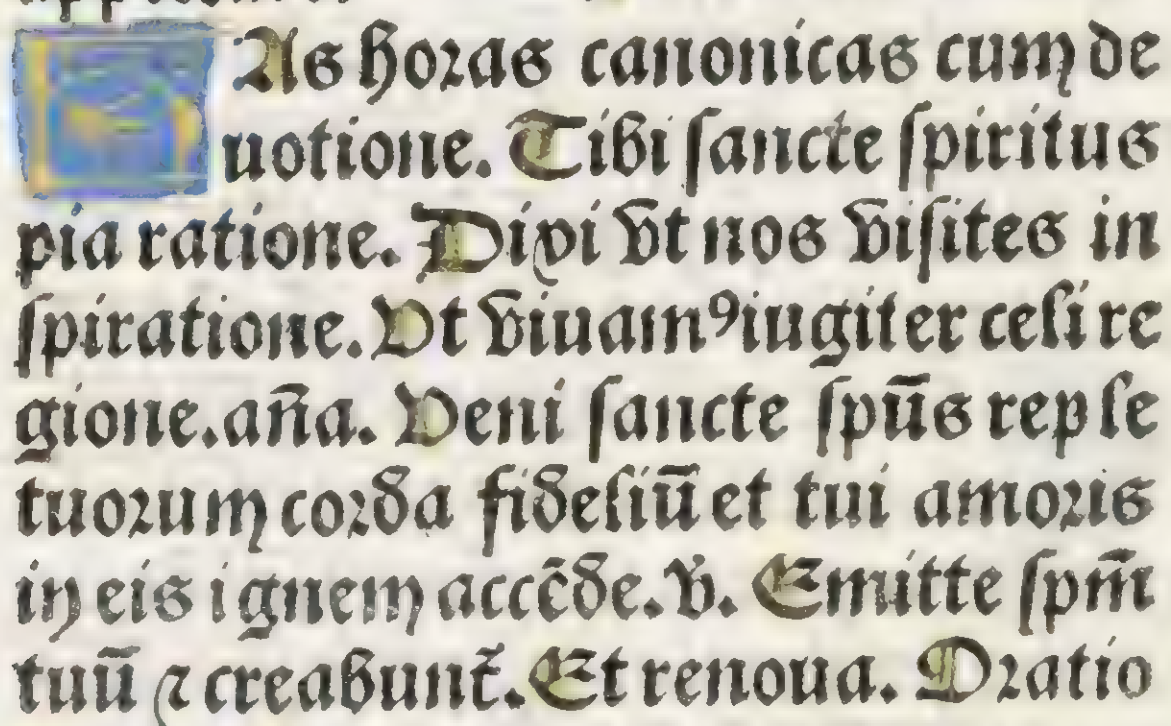 HAs horas canonicas cum de
uotione. Tibi sancte spiritus
pia ratione. Dixi vt nos visites in
spiratione. Vt viuamꝰ iugiter celi re
gione. an̄a. Veni sancte spūs reple
tuorum corda fideliū et tui amoris
in eis ignem accēde. v. Emitte spm̄
tuū ⁊ creabunt̄. Et renoua. Oratio